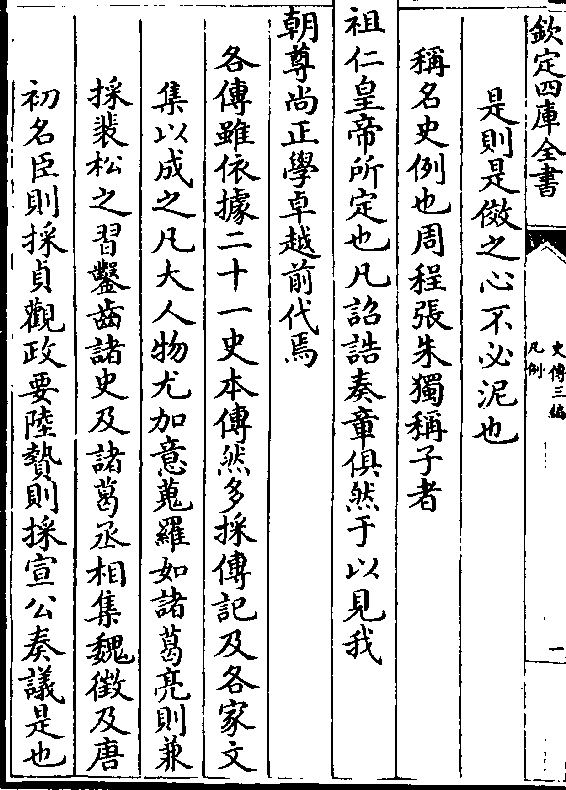 欽定四庫全書
史傳三編
凡例
一
是則是傚之心不必泥也
稱名史例也周程張朱獨稱子者
祖仁皇帝所定也凡詔誥奏章俱然于以見我
朝尊尚正學卓越前代焉
各傳雖依據二十一史本傳然多採傳記及各家文
集以成之凡大人物尤加意蒐羅如諸葛亮則兼
採裴松之習鑿齒諸史及諸葛丞相集魏徵及唐
初名臣則採貞觀政要陸贄則採宣公奏議是也